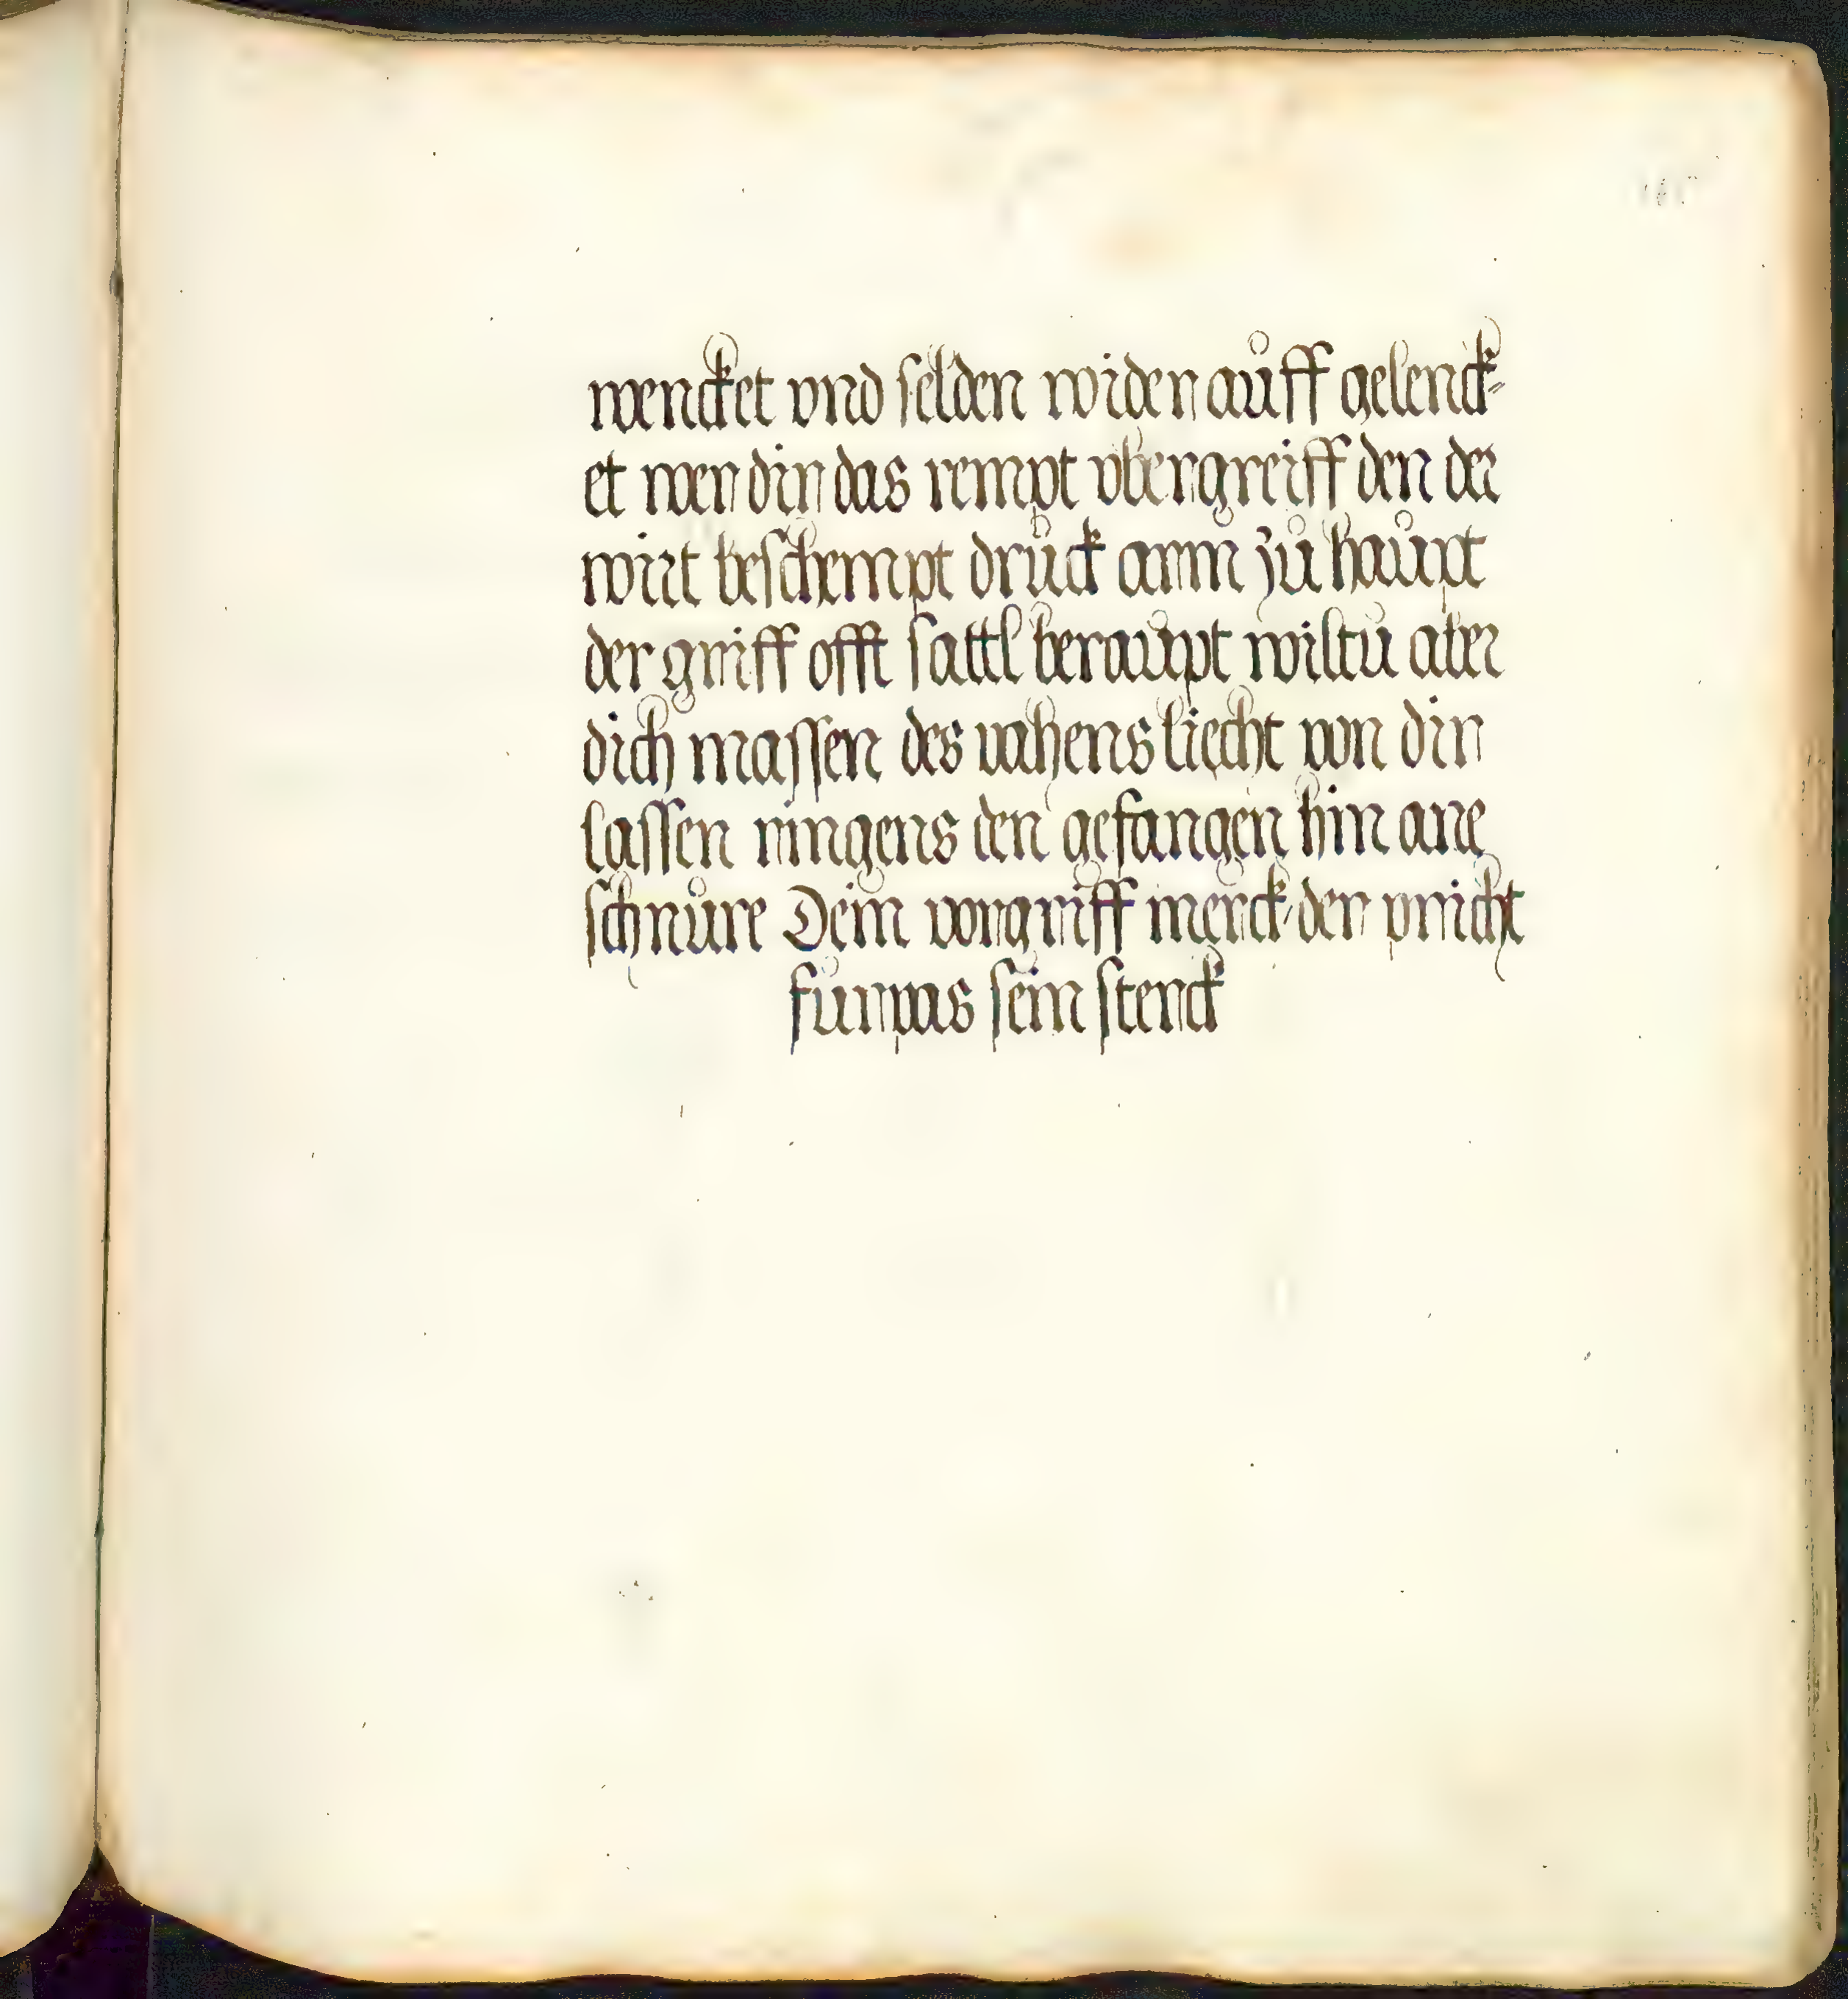 wencket vnd selden widen aůff gelenck-
et wen din das rempt vbergreiff den der
wirt beschempt drůck arm zů haůpt
der griff offt sattl beraůpt wiltů aber
dich massen des vahens liecht von din
lassen ringens den gefangen hin ane
schnůre Dein vorgriff merck der pricht
fůrpas sein stenck